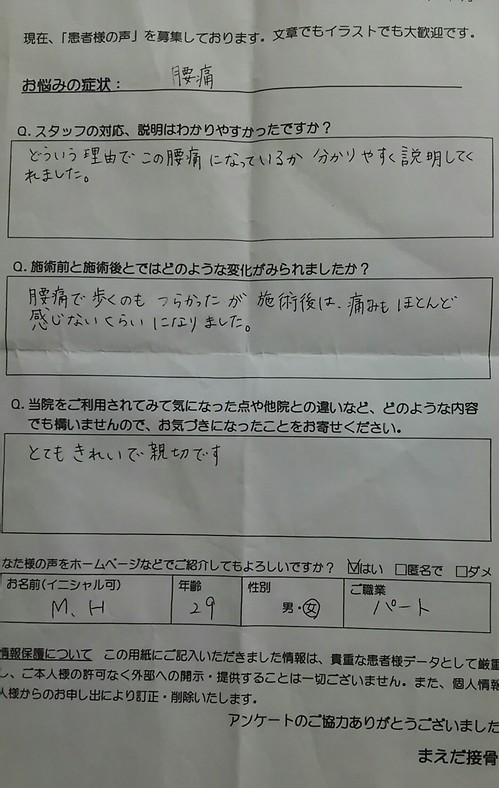 現在、「患者様の声」を募集しております。文章でもイラストでも大歓迎です。
お悩みの症状： 腰痛
Q. スタッフの対応、説明はわかりやすかったですか？
どういう理由でこの腰痛になっているか分かりやすく説明してく
れました。
Q. 施術前と施術後とではどのような変化がみられましたか？
腰痛で歩くのもつらかったが施術後は、痛みもほとんど
感じないくらいになりました。
Q. 当院をご利用されてみて気になった点や他院との違いなど、どのような内容
でも構いませんので、お気づきになったことをお寄せください。
とてもきれいで親切です
なた様の声をホームページなどでご紹介してもよろしいですか？ ☑はい □匿名で □ダメ
お名前(イニシャル可) 年齢 性別 ご職業
M、H 29 男・女 パート
情報保護について この用紙にご記入いただきました情報は、貴重な患者様データとして厳重
し、ご本人様の許可なく外部への開示・提供することは一切ございません。また、個人情報
人様からのお申し出により訂正・削除いたします。
アンケートのご協力ありがとうございました
まえだ接骨